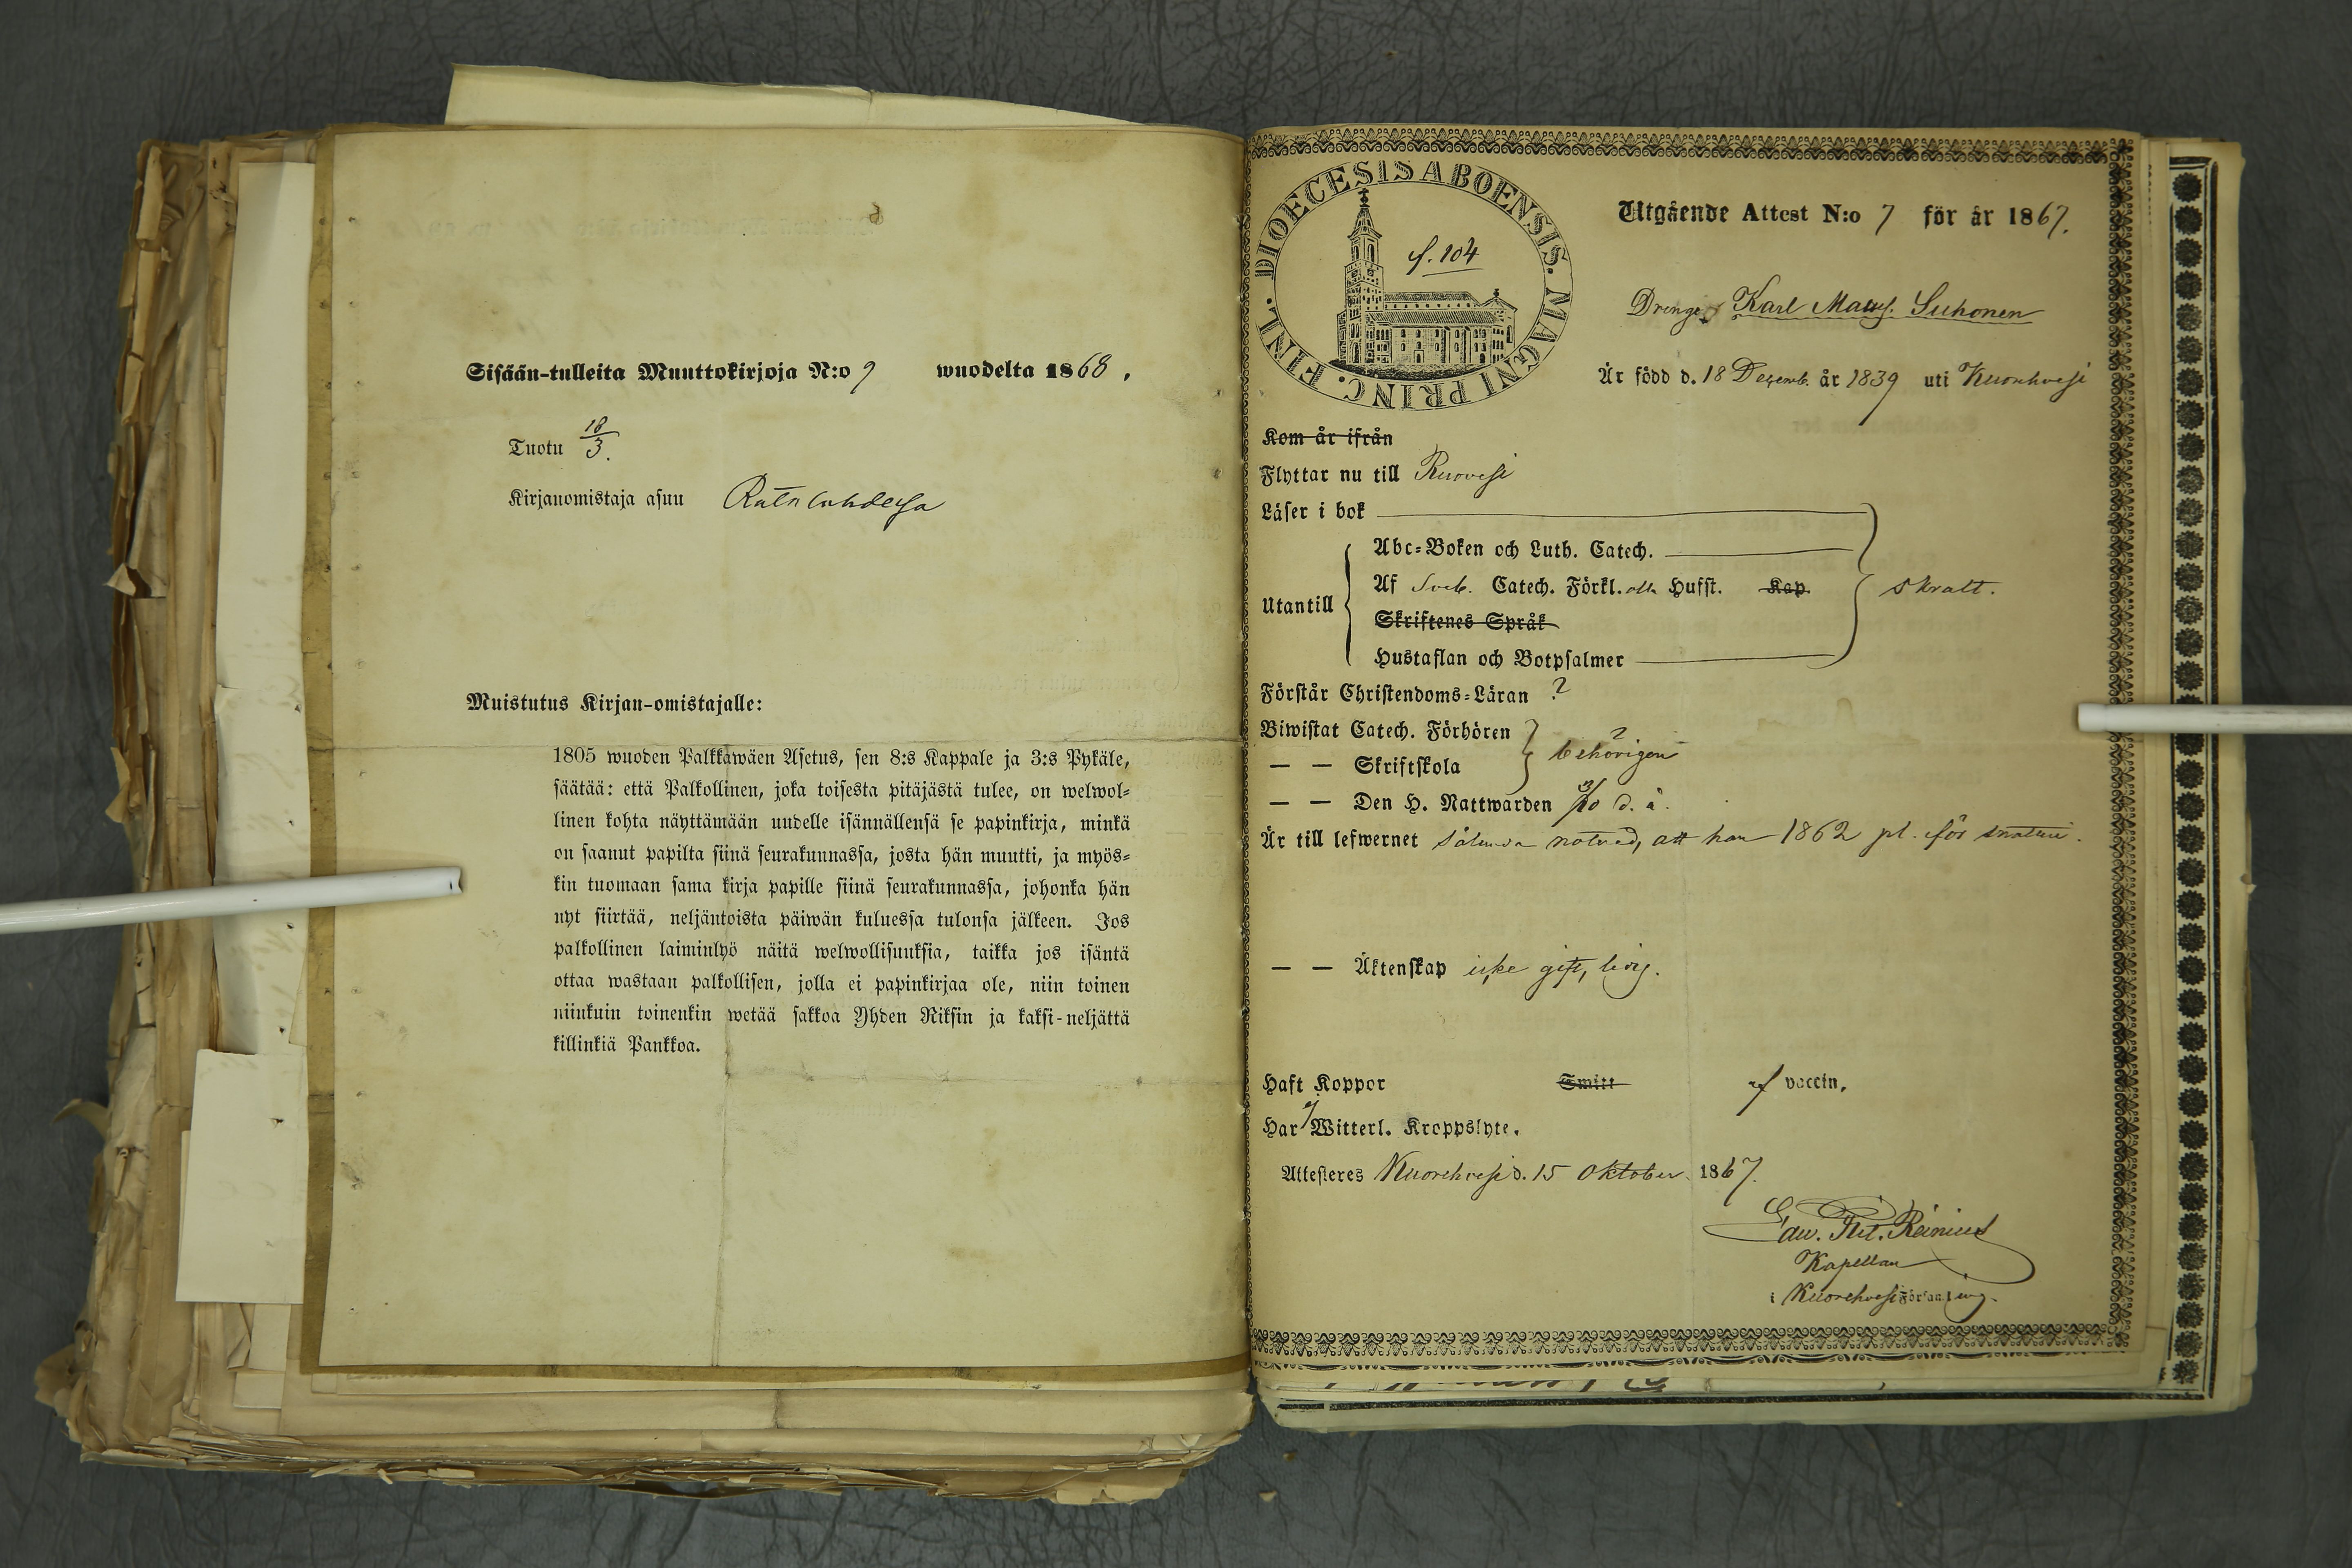 Sisään-tulleita Muuttokirjoja N:o 9 wuodelta 1868.
Tuotu 18/3.
Kirjanomistaja asuu
Muistutus Kirjan-omistajalle:
1805 wuoden Palkkawäen Asetus, sen 8:s Kappale ja 3:s Pykäle,
säätää: että Palkollinen, joka toisesta pitäjästä tulee, on welwol-
linen kohta näyttämään uudelle isännällensä se papinkirja, minkä
on saanut papilta siinä seurakunnassa, josta hän muutti, ja myös-
kin tuomaan sama kirja papille siinä seurakunnassa, johonka hän
nyt siirtää, neljäntoista päiwän kuluessa tulonsa jälkeen. Jos
palkollinen laiminlyö näitä welwollisuuksia, taikka jos isäntä
ottaa wastaan palkollisen, jolla ei papinkirjaa ole, niin toinen
niinkuin toinenkin wetää sakkoa Yhden Riksin ja kaksi-neljättä
killinkiä Pankkoa.
DIOECESIS ABOENSIS. MAGNI PRINC. FINL.
f. 104
Utgående Attest N:o 7 för år 1867.
Drengen Karl Matts. Suhonen
Är född d. 18 Decemb. år 1839 uti Kuorehvesi
Kom år ifrån
Flyttar nu till Ruovesi
Läser i bok
Abc-Boken och Luth. Catech.
Utantill
Af Sveb. Catech. Förkl. Hufst. Kap.
Skriftenes Språk
Hustaflan och Botpsalmer
skralt.
Förstår Christendoms-Läran ?
Biwistat Catech. Förhören
— — Skriftskola
? behörigen
— — Den H. Nattwarden d. å.
Är till lefwernet sålunda noterad, att han 1862 pl. för snatteri.
— — Äktenskap icke gift, ledig.
Haft Koppor Smitt af vaccin.
Har ej Witterl. Kroppslyte.
Attesteres Kuorehvesi d. 15 Oktober 1867.
Edw. Reinius
Kapellan
i Kuorehvesi Församling.